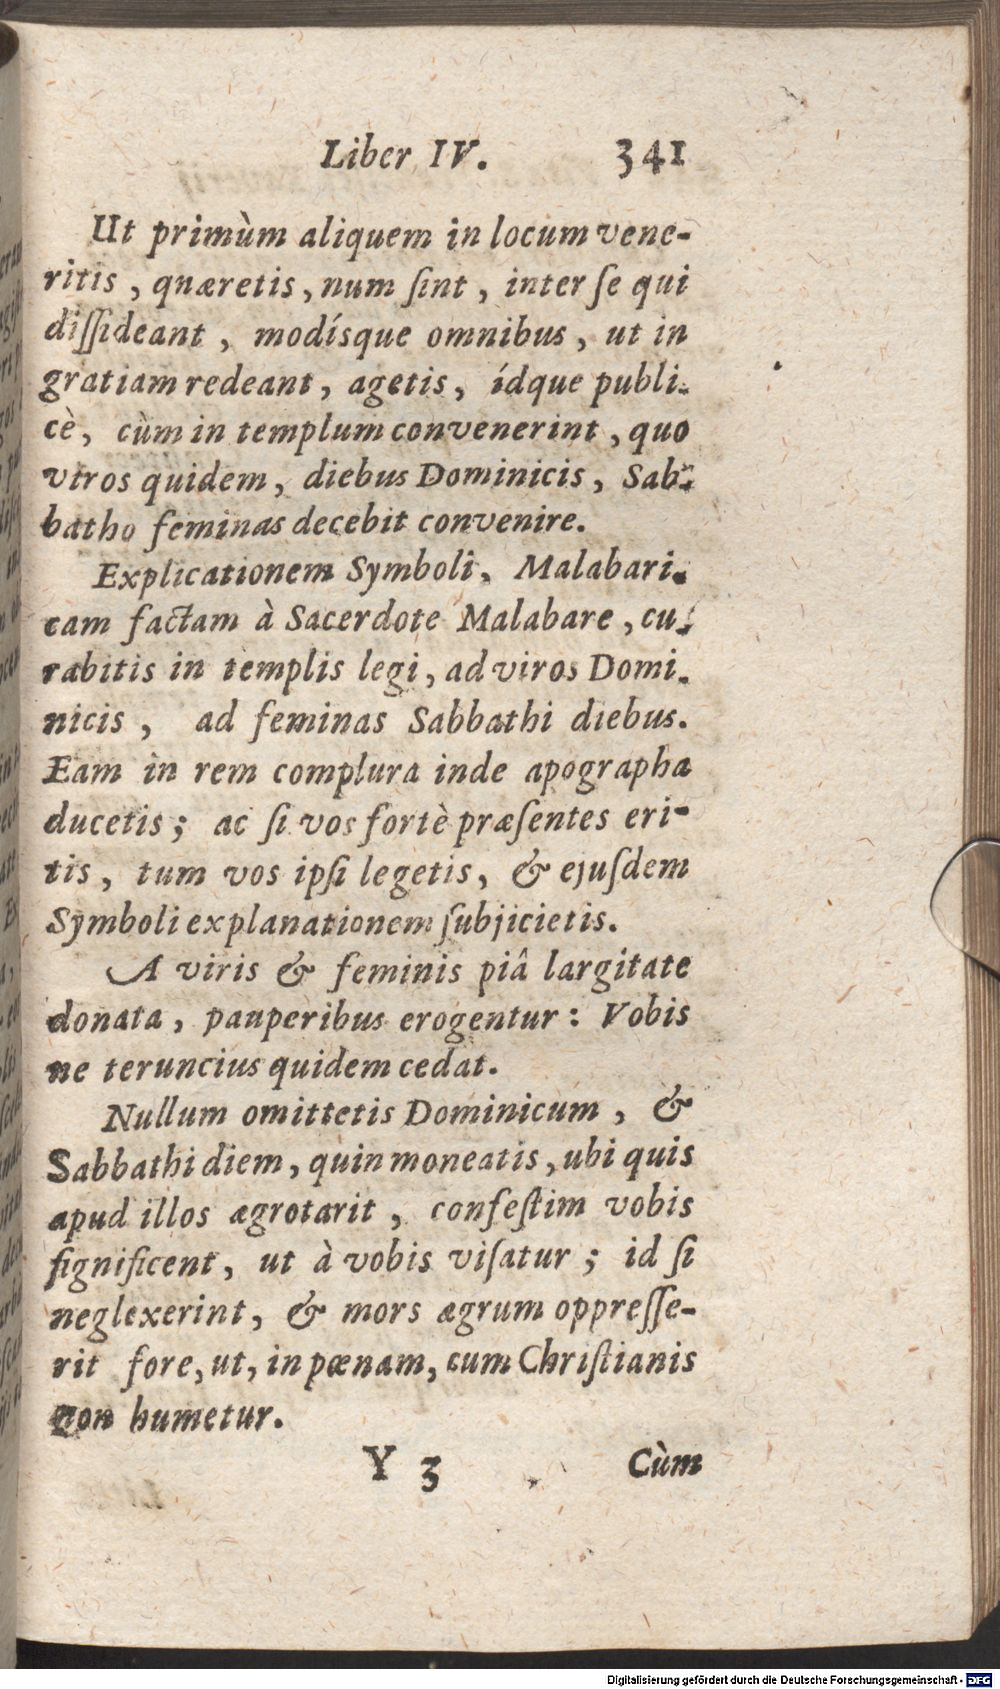 Liber IV. 341
Ut primùm aliquem in locum vene-
ritis, quæretis, num ſint, inter ſe qui
diſſideant, modísque omnibus, ut in
gratiam redeant, agetis, ídque publi-
cè, cùm in templum convenerint, quo
viros quidem, diebus Dominicis, Sab-
batho feminas decebit convenire.
Explicationem Symboli, Malabari-
cam factam à Sacerdote Malabare, cu-
rabitis in templis legi, ad viros Domi-
nicis, ad feminas Sabbathi diebus.
Eam in rem complura inde apographa
ducetis; ac ſi vos fortè præſentes eri-
tis, tum vos ipſi legetis, & ejuſdem
Symboli explanationem ſubjicietis.
A viris & feminis piâ largitate
donata, pauperibus erogentur: Vobis
ne teruncius quidem cedat.
Nullum omittetis Dominicum, &
Sabbathi diem, quin moneatis, ubi quis
apud illos ægrotarit, confeſtim vobis
ſignificent, ut à vobis viſatur; id ſi
neglexerint, & mors ægrum oppreſſe-
rit fore, ut, in pœnam, cum Chriſtianis
non humetur.
Y 3 Cùm
Digitalisierung gefördert durch die Deutsche Forschungsgemeinschaft - DFG